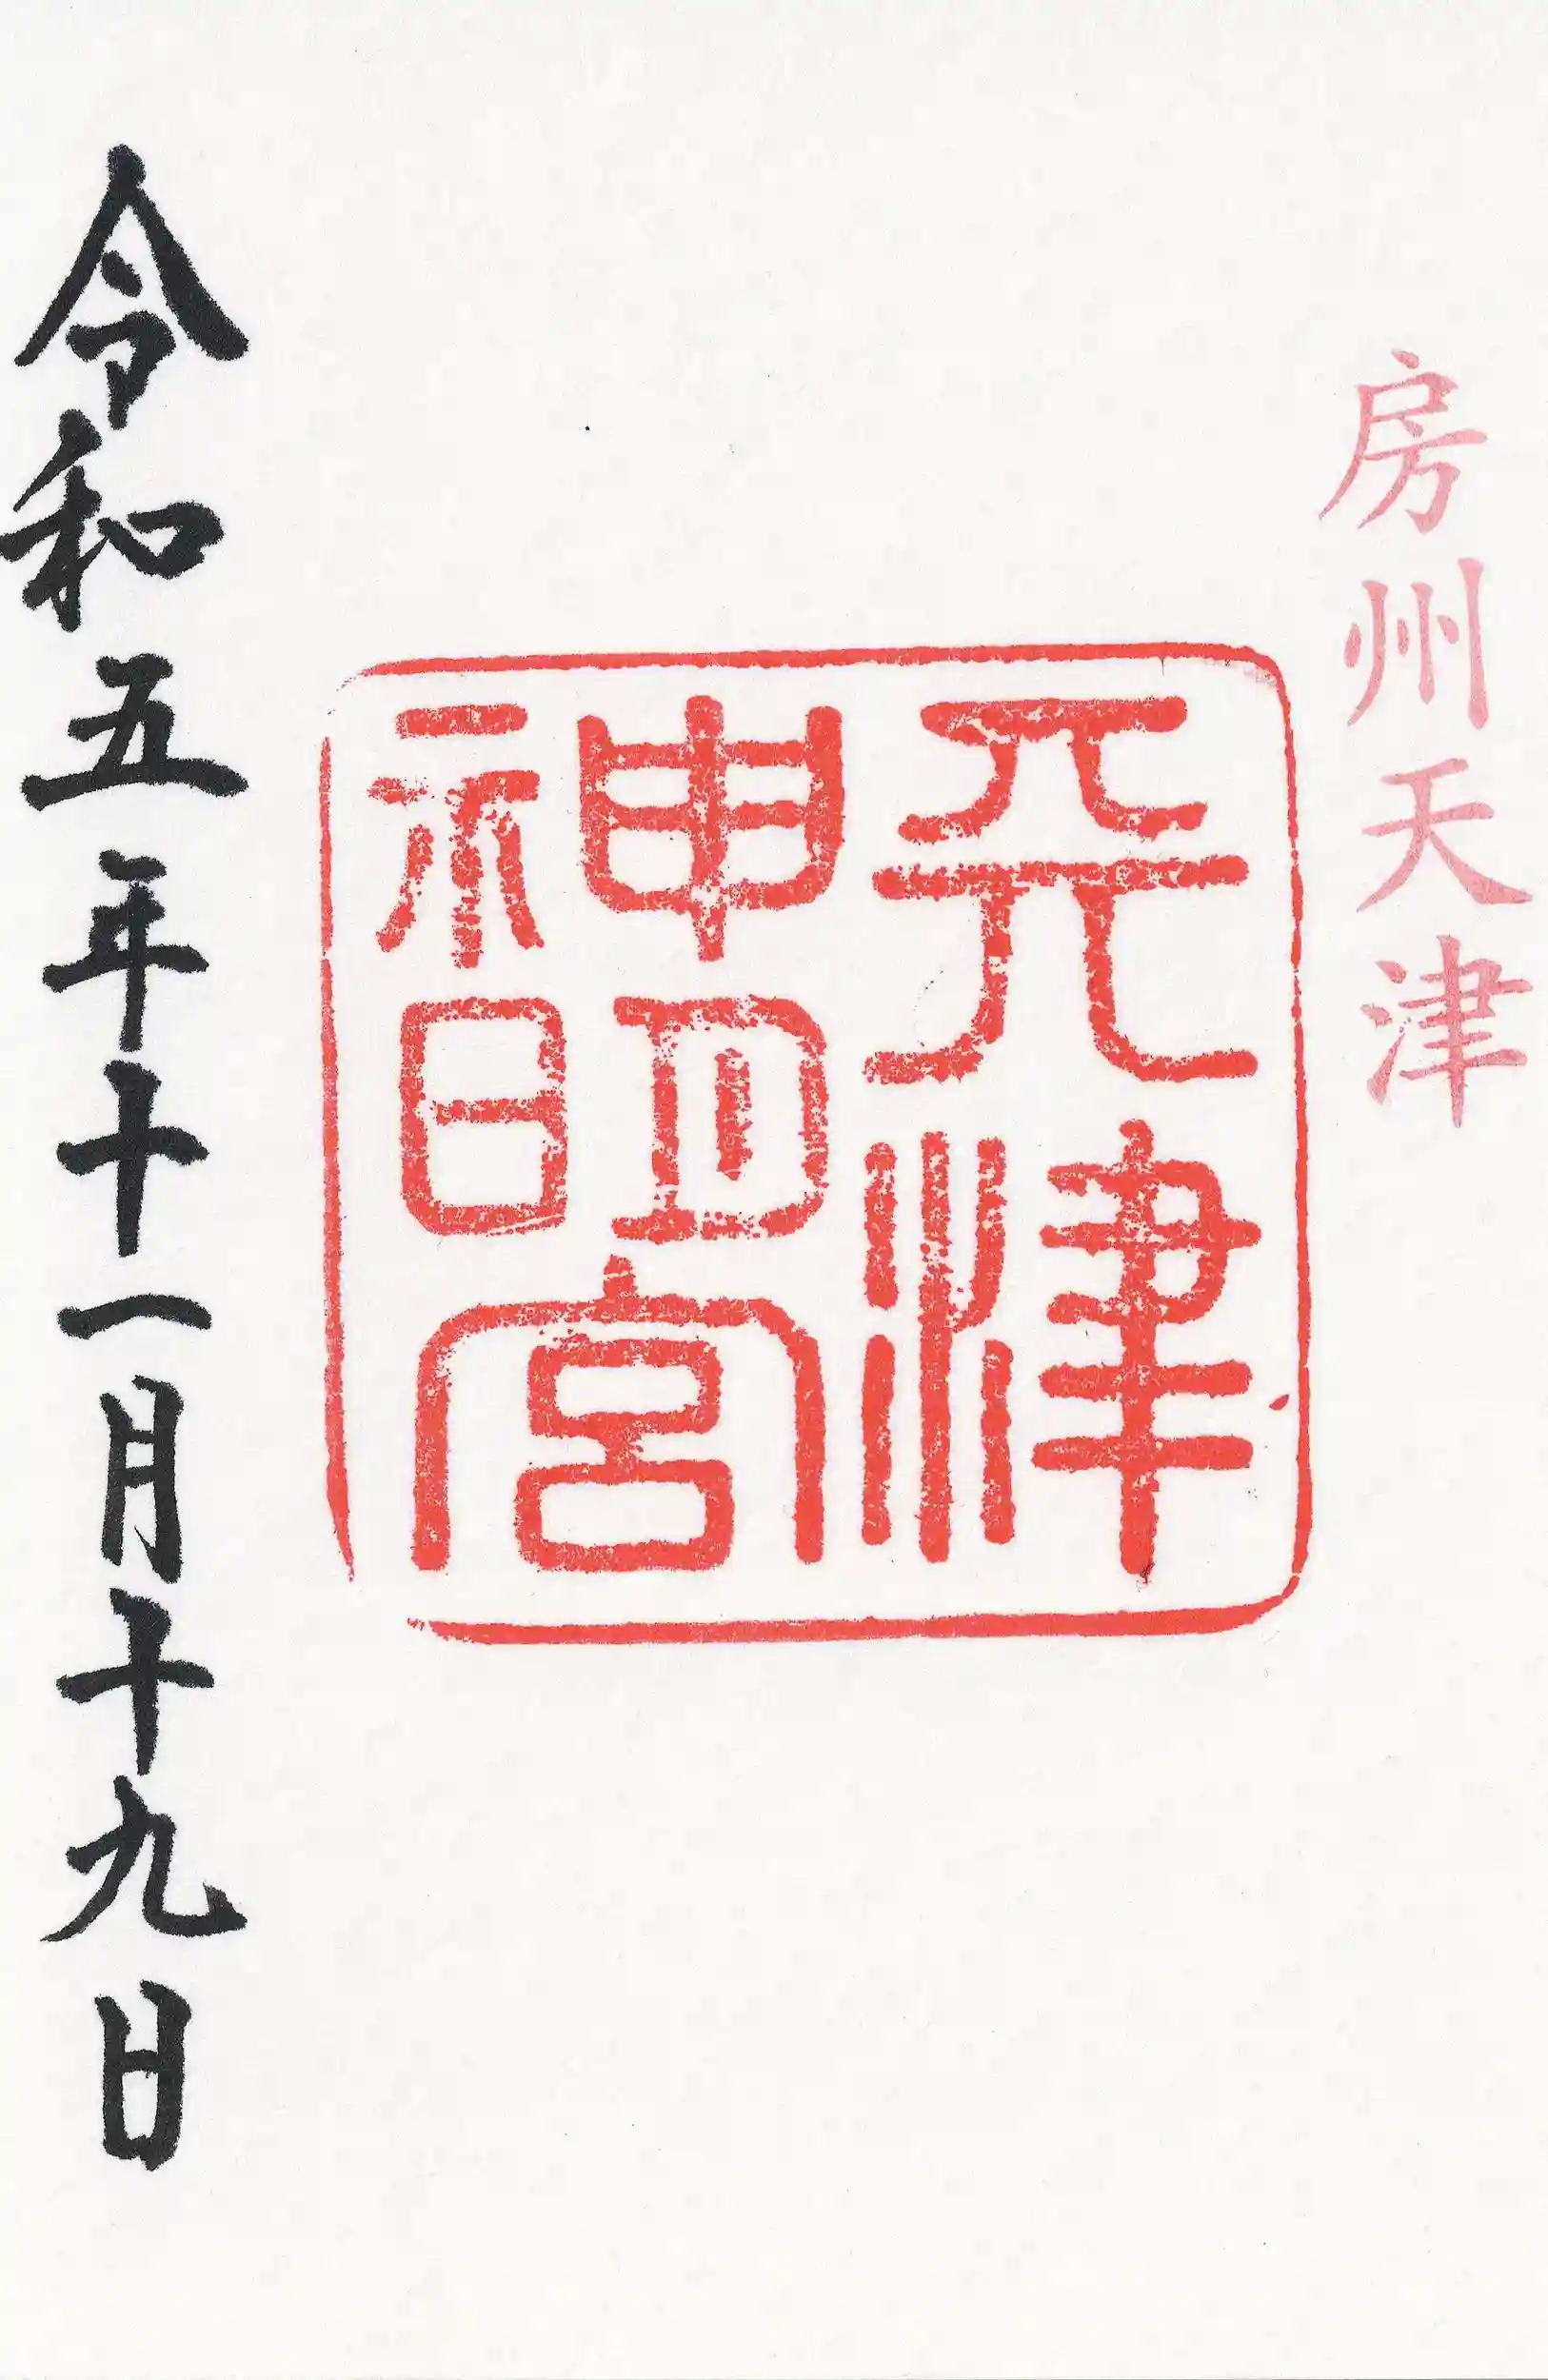 房州天津
天津
神明宮
令和五年十一月十九日